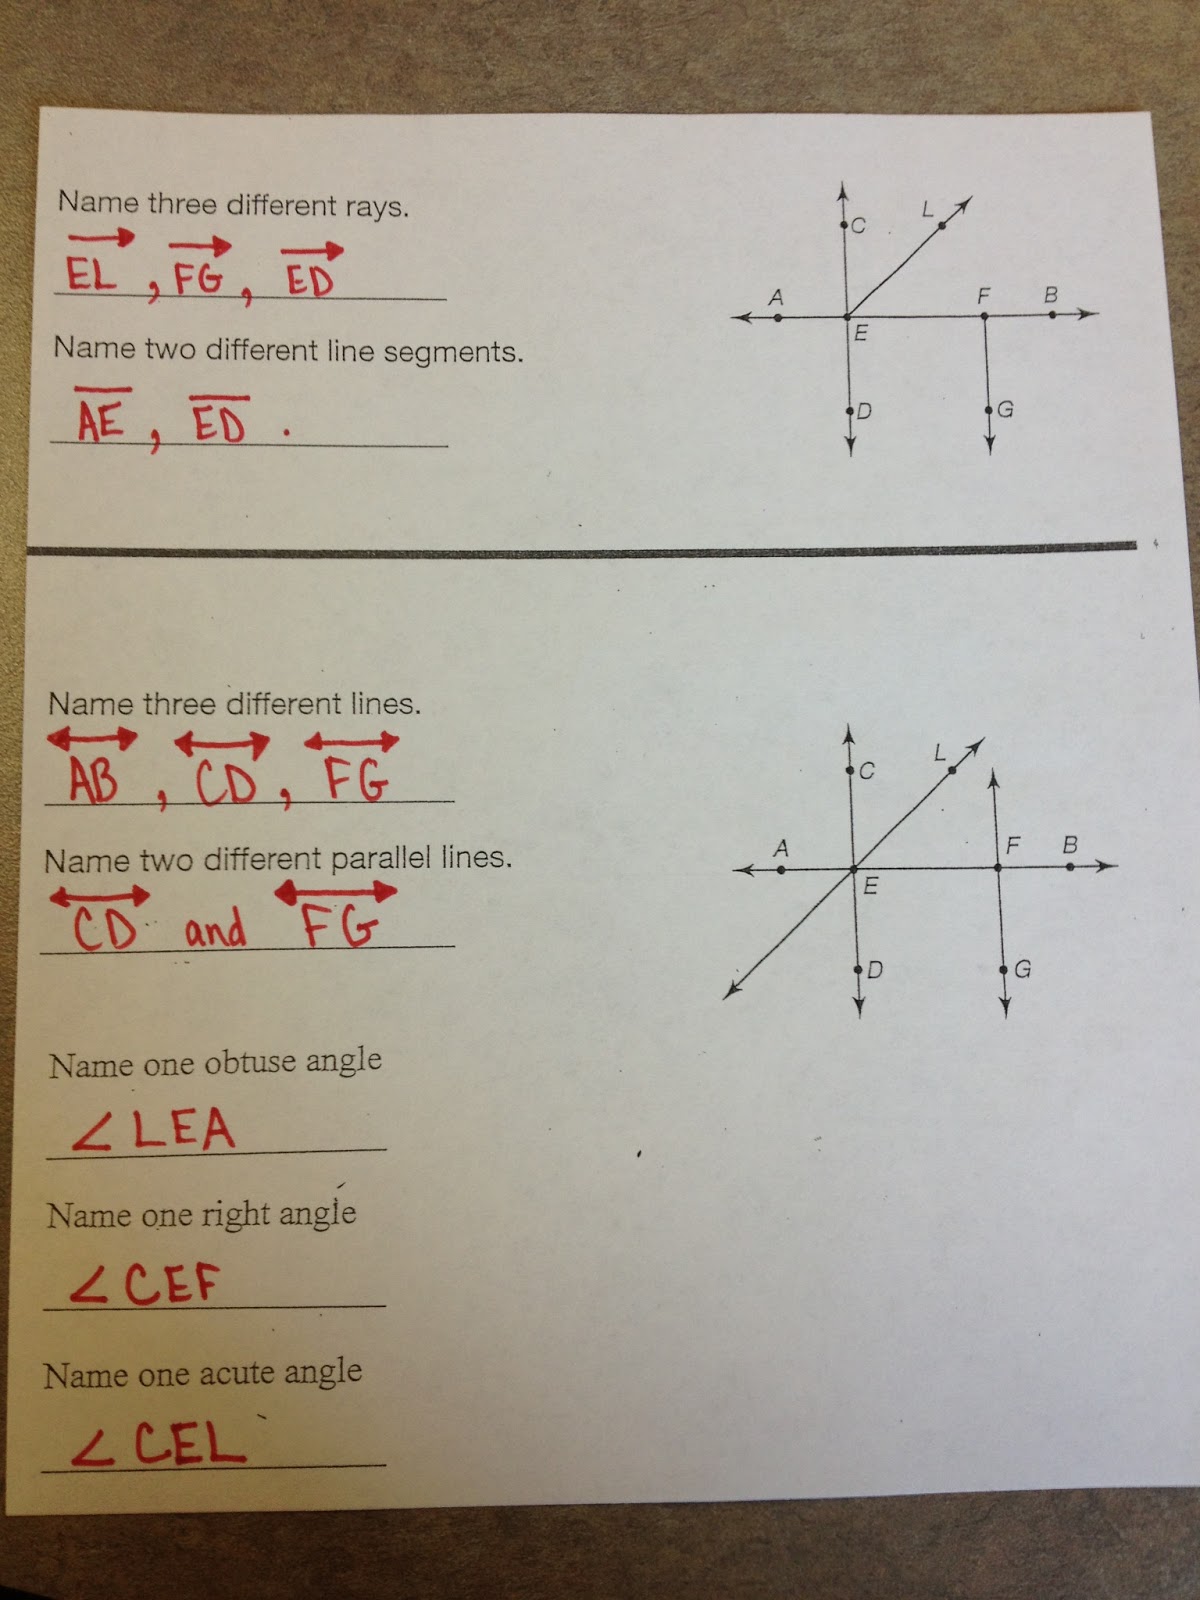 Name three different rays.
EL , FG , ED
Name two different line segments.
AE , ED .
C
L
A
F
B
E
D
G
Name three different lines.
AB , CD , FG
Name two different parallel lines.
CD and FG
C
L
A
F
B
E
D
G
Name one obtuse angle
∠ LEA
Name one right angle
∠ CEF
Name one acute angle
∠ CEL